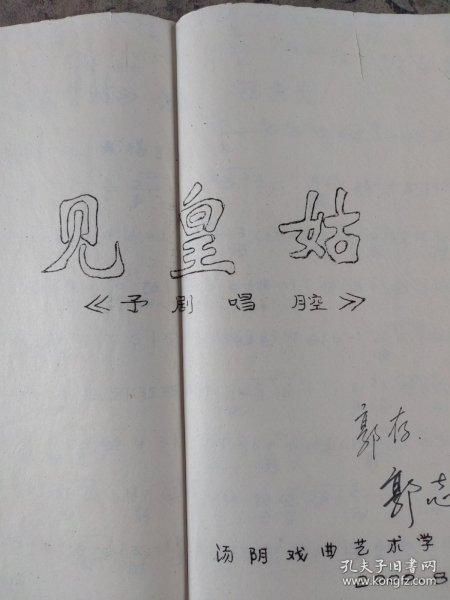 见皇姑
《予剧唱腔》
郭存.
郭志
汤阴戏曲艺术学
孔夫子旧书网